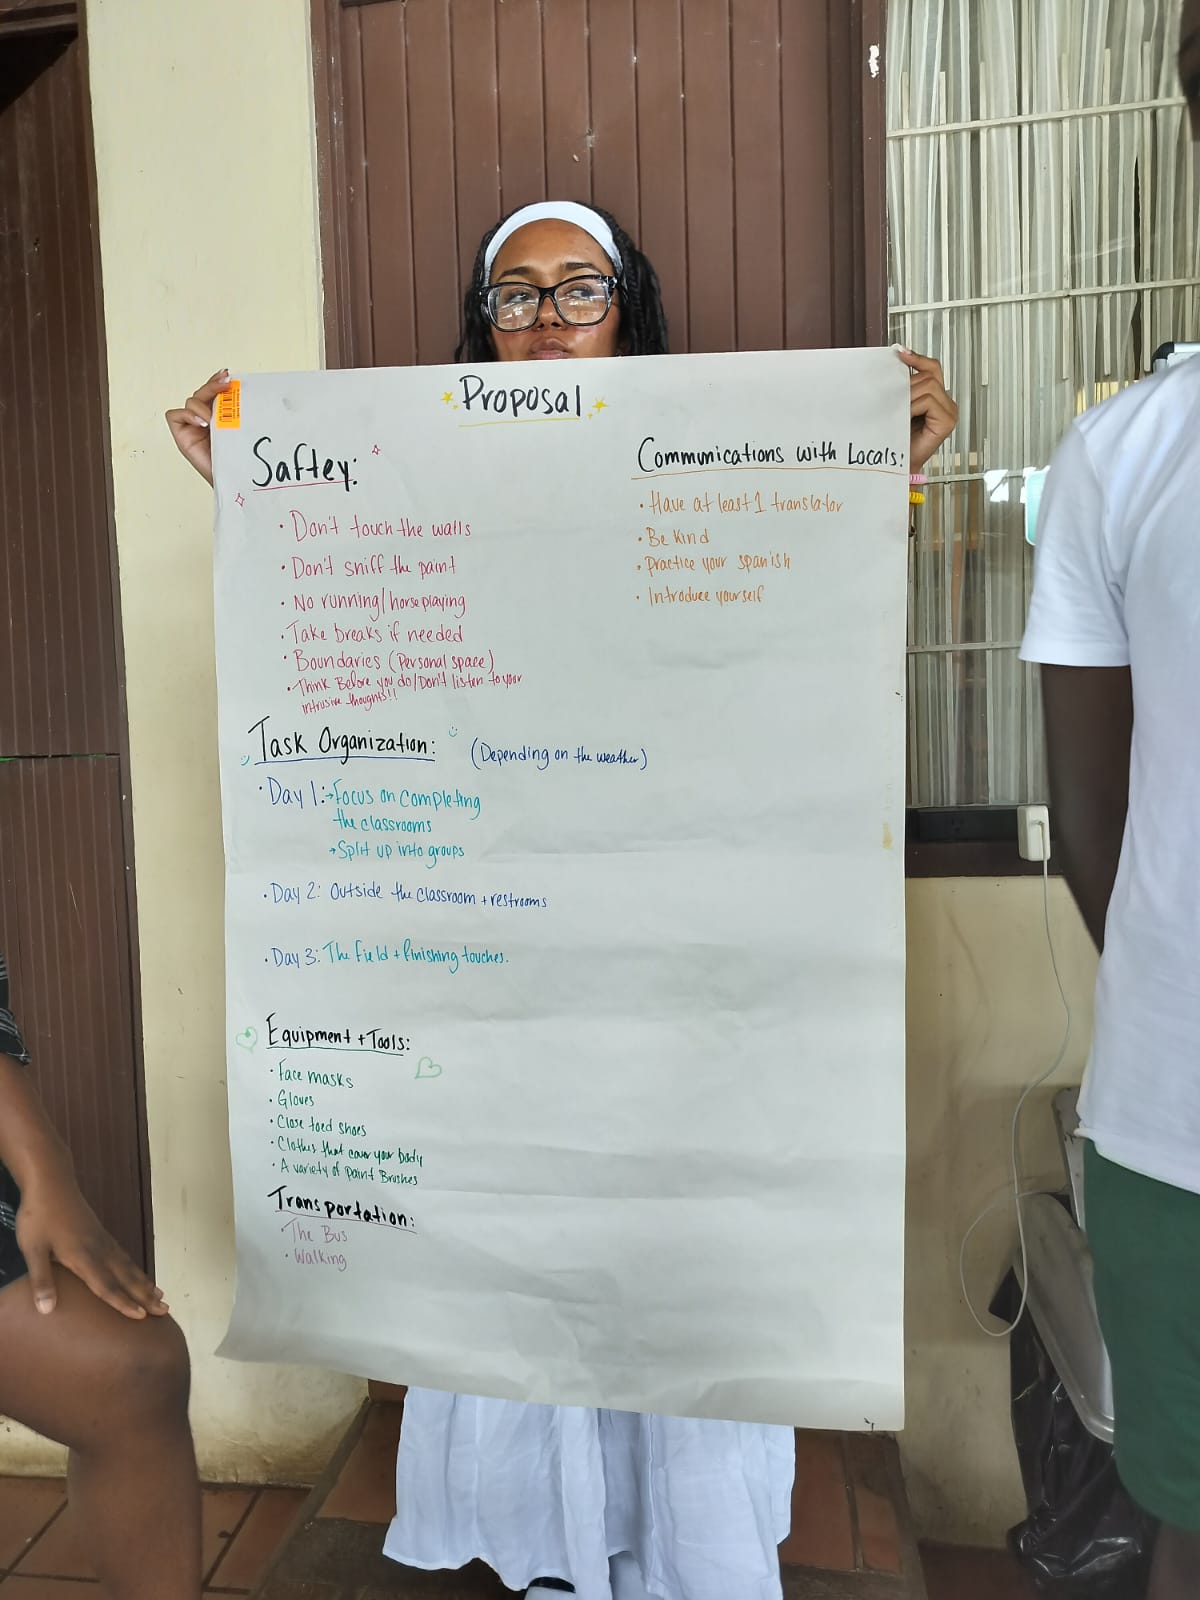 Proposal
Saftey:
• Don't touch the walls
• Don't sniff the paint
• No running/horseplaying
• Take breaks if needed
• Boundaries (Personal space)
• Think Before you do/Don't listen to your
intrusive thoughts!!
Communications with Locals:
• Have at least 1 translator
• Be Kind
• Practice your spanish
• Introduce yourself
Task Organization: (Depending on the weather)
• Day 1: → Focus on completing
the classrooms
→ Split up into groups
• Day 2: Outside the classroom + restrooms
• Day 3: The field + finishing touches.
Equipment + Tools:
• Face masks
• Gloves
• Close toed shoes
• Clothes that cover your body
• A variety of paint Brushes
Transportation:
• The Bus
• Walking